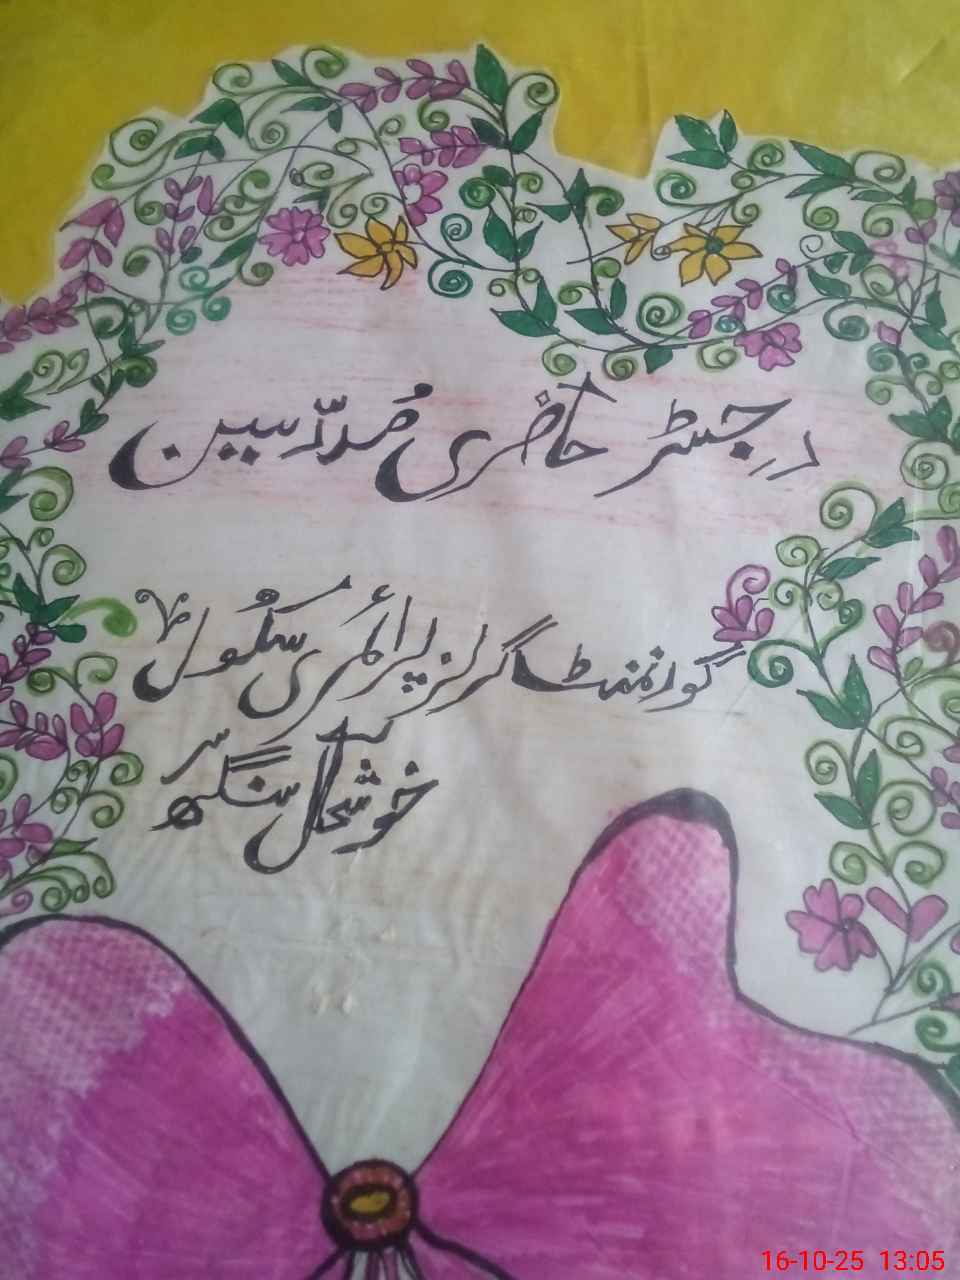 رجسٹر حاضری مُدرّسین
گورنمنٹ گرلز پرائمری سکُول
کے سر
خوشحال سنگھ
16-10-25 13:05